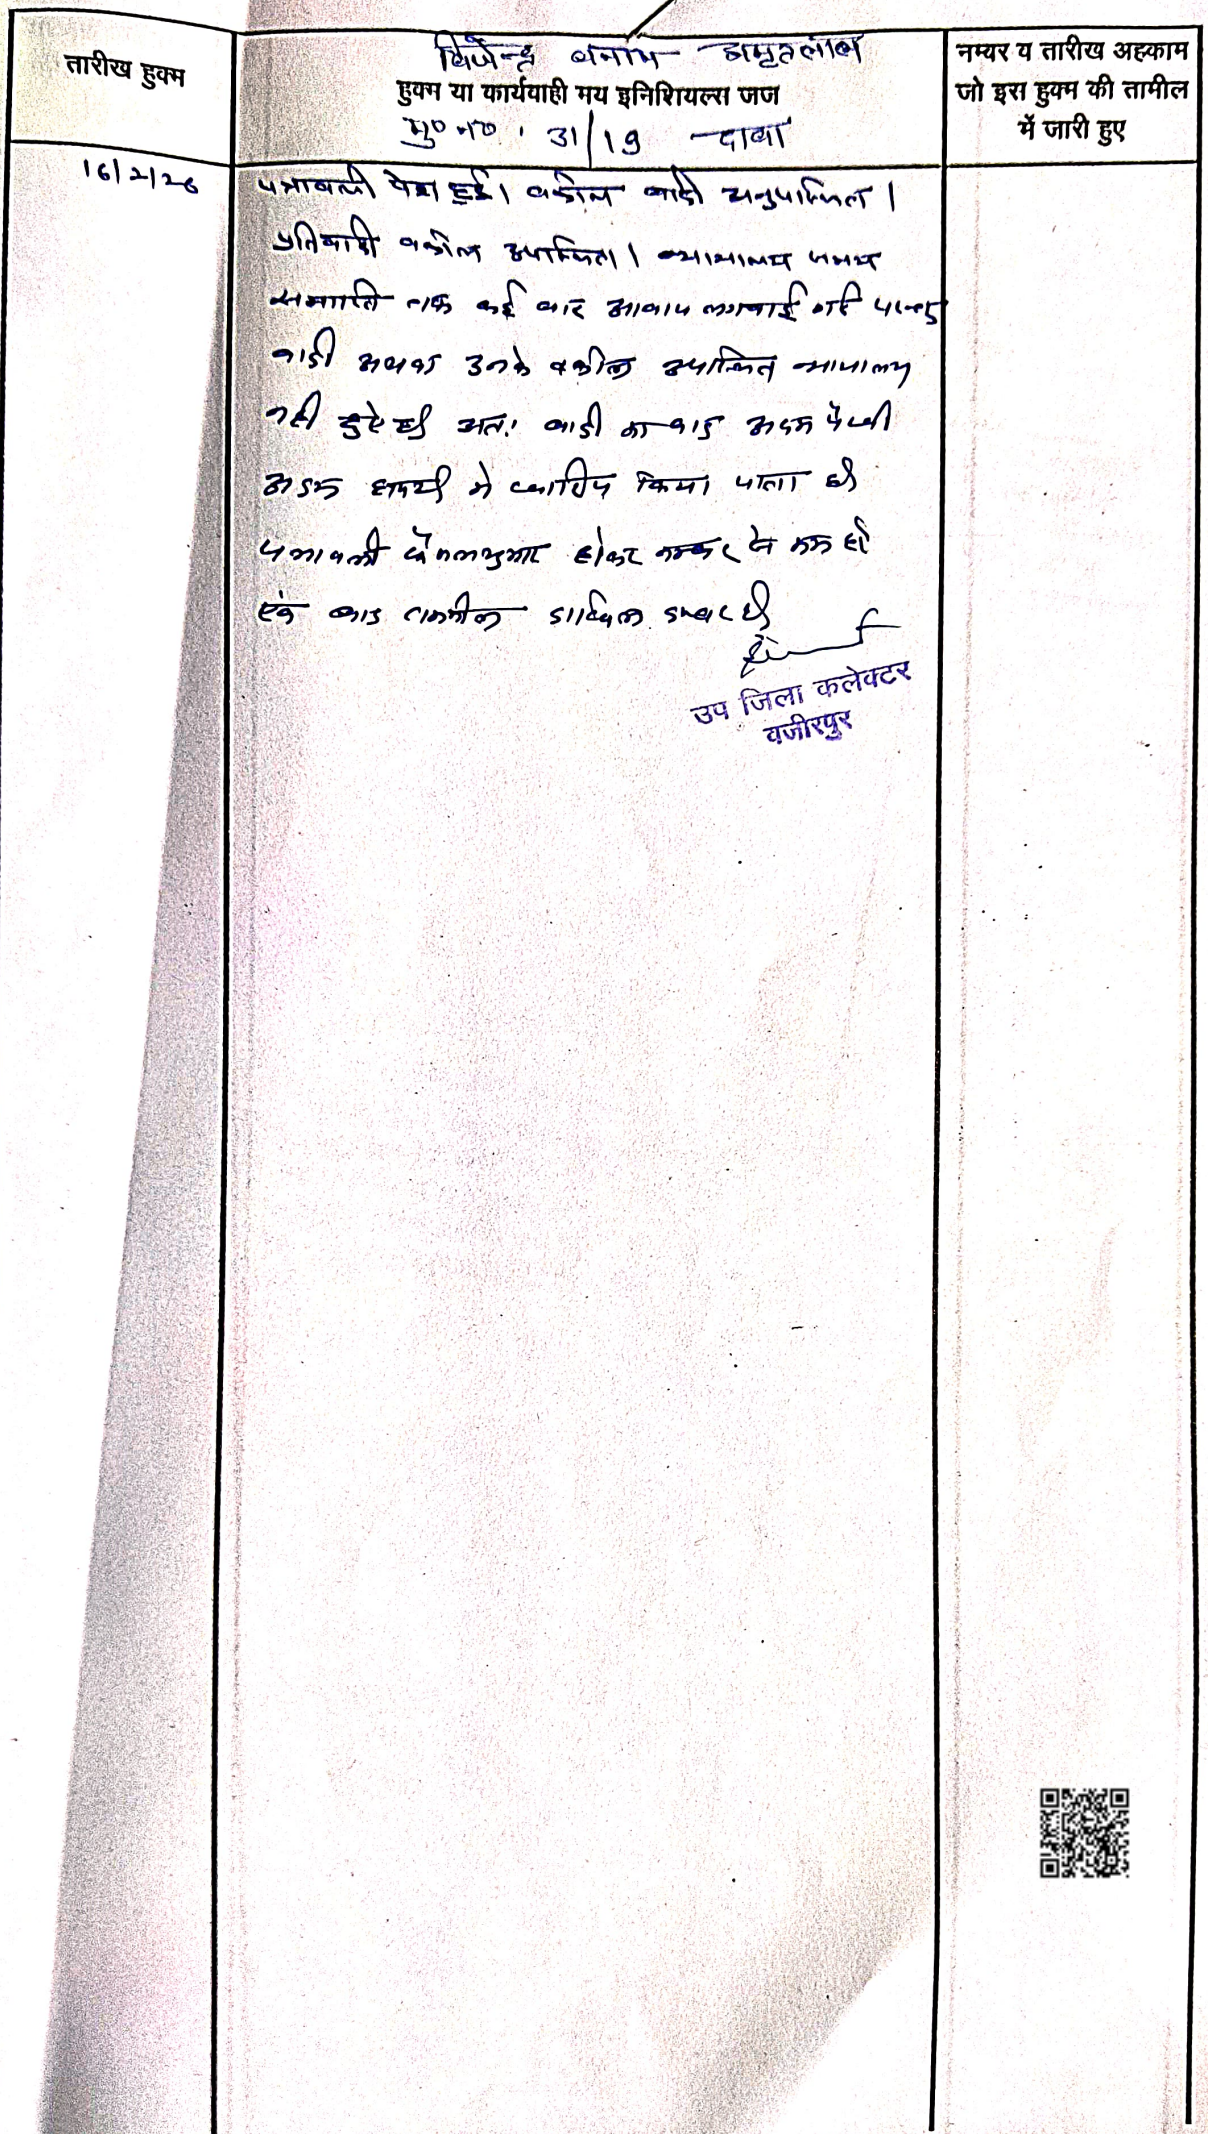 तारीख हुक्म
विजेन्द्र बनाम अमृतलाल
हुक्म या कार्यवाही मय इनिशियल्स जज
मु० न० : 31/19 दावा
नम्बर व तारीख अहकाम
जो इस हुक्म की तामील
में जारी हुए
16/2/26
पत्रावली पेश हुई। वकील वादी अनुपस्थित।
प्रतिवादी वकील उपस्थित। न्यायालय समय
समाप्ति तक कई बार आवाज लगवाई गई परन्तु
वादी अथवा उनके वकील उपस्थित न्यायालय
नहीं हुऐ है। अतः वादी का वाद अदम पैरवी
अदम हाजरी में खारिज किया जाता है।
पत्रावली फैसलशुमार होकर नम्बर से कम हो
एवं बाद तकमील दाखिल दफ्तर हो।
उप जिला कलेक्टर
वजीरपुर